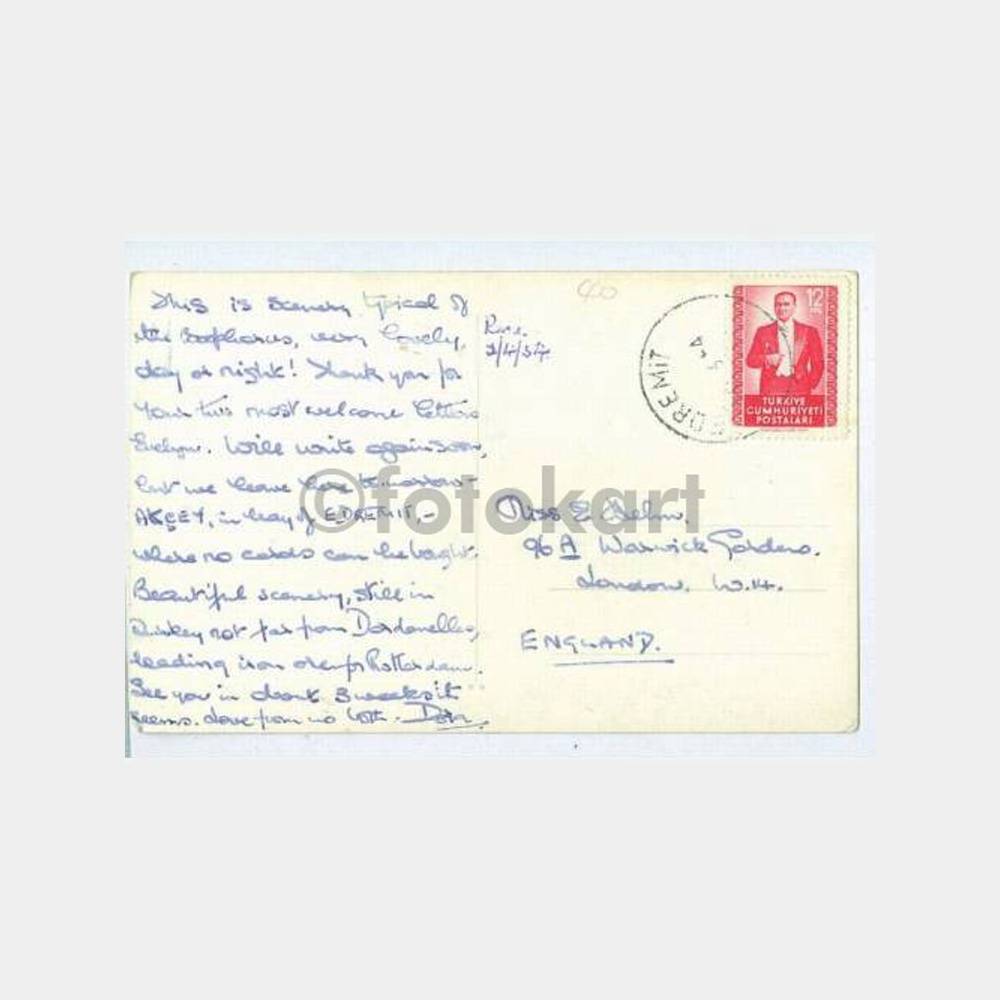 This is scenery typical of
the Bosphorus, very lovely,
day or night! Thank you for
your this most welcome letters
Evelyn. Will write again soon,
but we leave here tomorrow -
AKÇEY, in bay of EDREMIT, -
where no cards can be bought.
Beautiful scenery, still in
Turkey not far from Dardanelles,
loading iron ore for Rotterdam.
See you in about 3 weeks it
seems. Love from us both.
/4/54.
EDREMİT
12
TÜRKİYE
CUMHURİYETİ
POSTALARI
Miss E.
96A Warwick Gardens.
London. W.14.
ENGLAND.
©fotokart